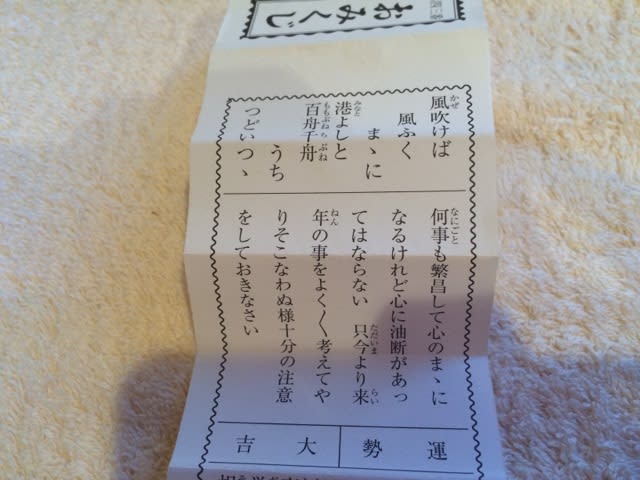 おみくじ
風吹けば
風ふく
まゝに
港よしと
百舟千舟
うち
つどいつゝ
何事も繁昌して心のまゝに
なるけれど心に油断があっ
てはならない 只今より来
年の事をよく〳〵考えてや
りそこなわぬ様十分の注意
をしておきなさい
運勢
大吉